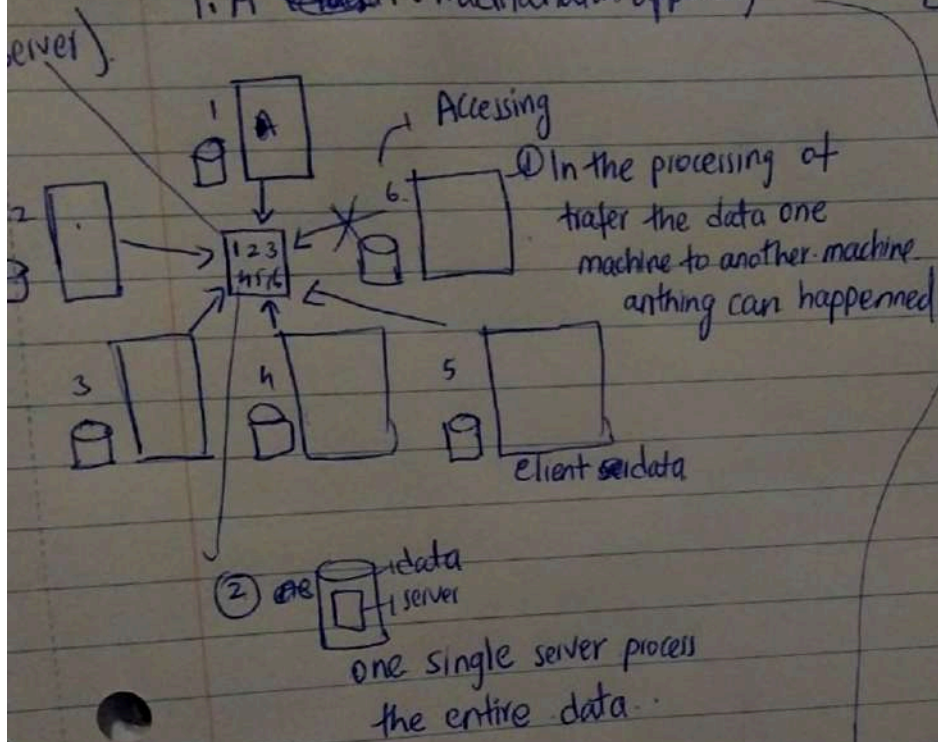 1. A
server).
1
A
Accessing
2
6.
① In the processing of
trafer the data one
machine to another machine
anthing can happenned
1 2 3
4 5 6
3
4
5
Client data
② data
server
one single server process
the entire data..